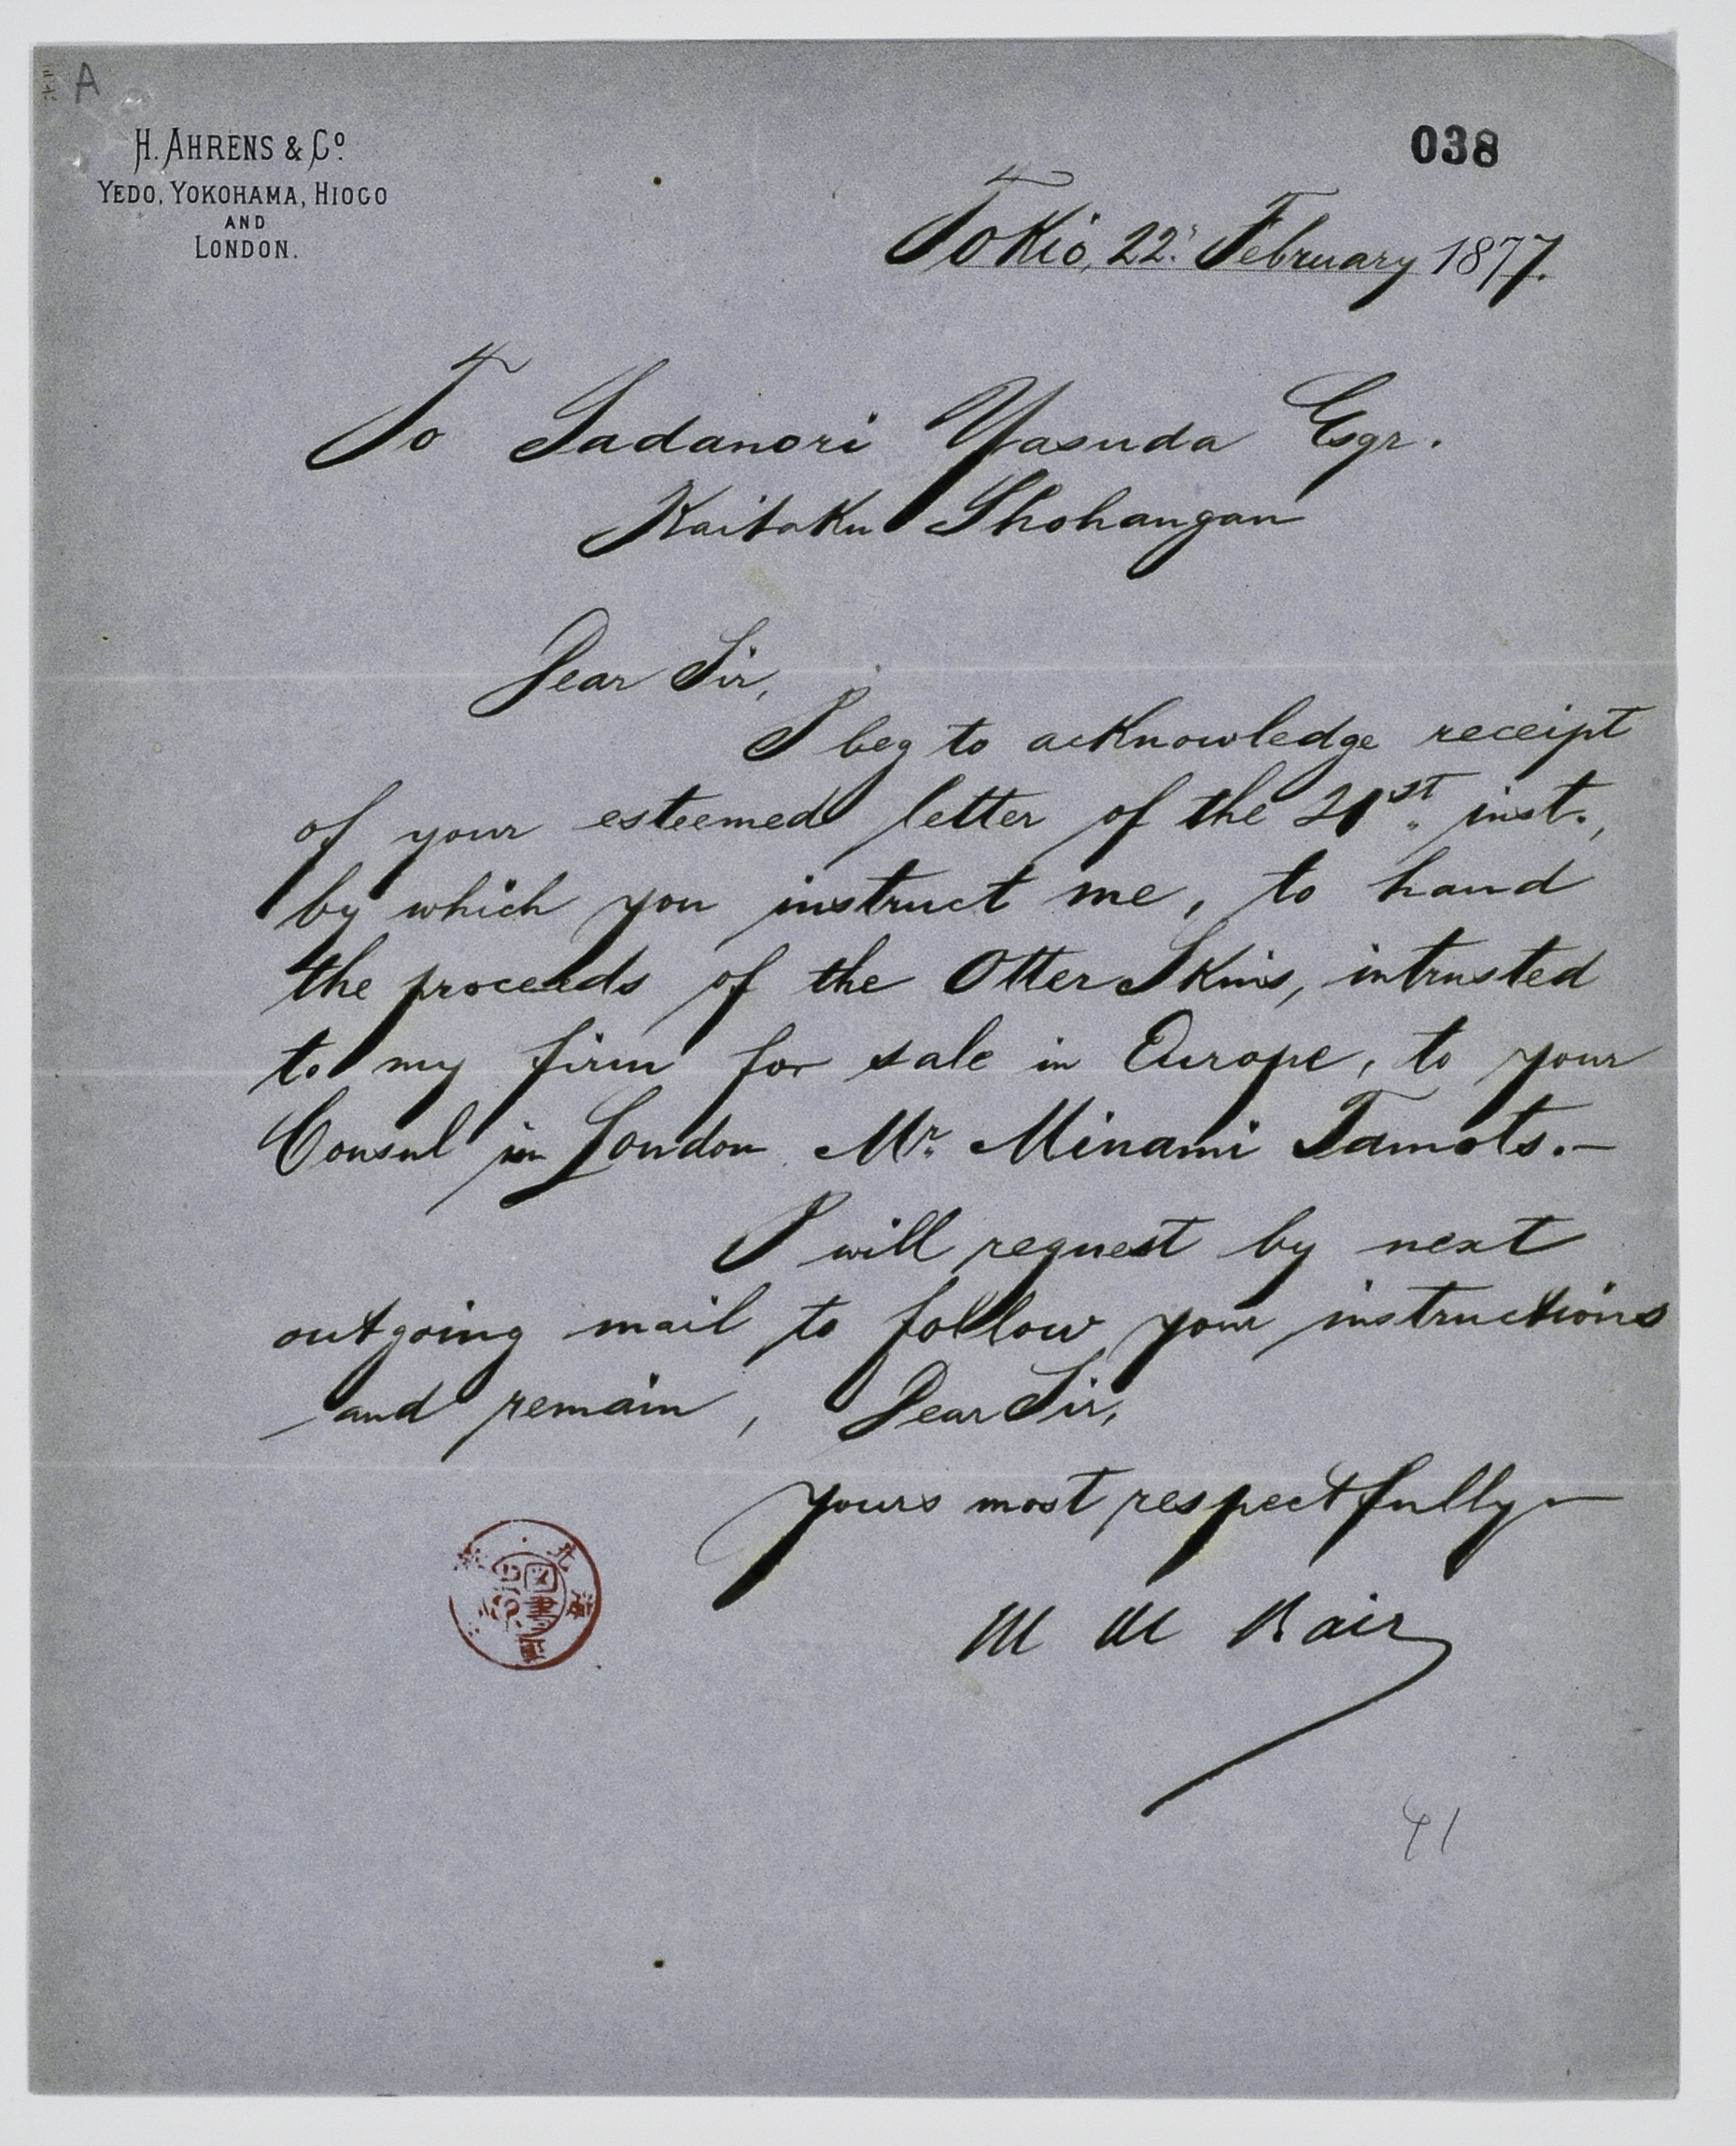 A
H. AHRENS & Co.
YEDO, YOKOHAMA, HIOGO
AND
LONDON.
038
Tokio, 22. February 1877.
To Sadanori Yasuda Esqr.
Kaitaku Shohangan
Dear Sir,
I beg to acknowledge receipt
of your esteemed letter of the 21st. inst.,
by which you instruct me, to hand
the proceeds of the Otter Skins, intrusted
to my firm for sale in Europe, to your
Consul in London Mr. Minami Tamots.—
I will request by next
outgoing mail to follow your instructions
and remain, Dear Sir,
yours most respectfully
M M Bair
41